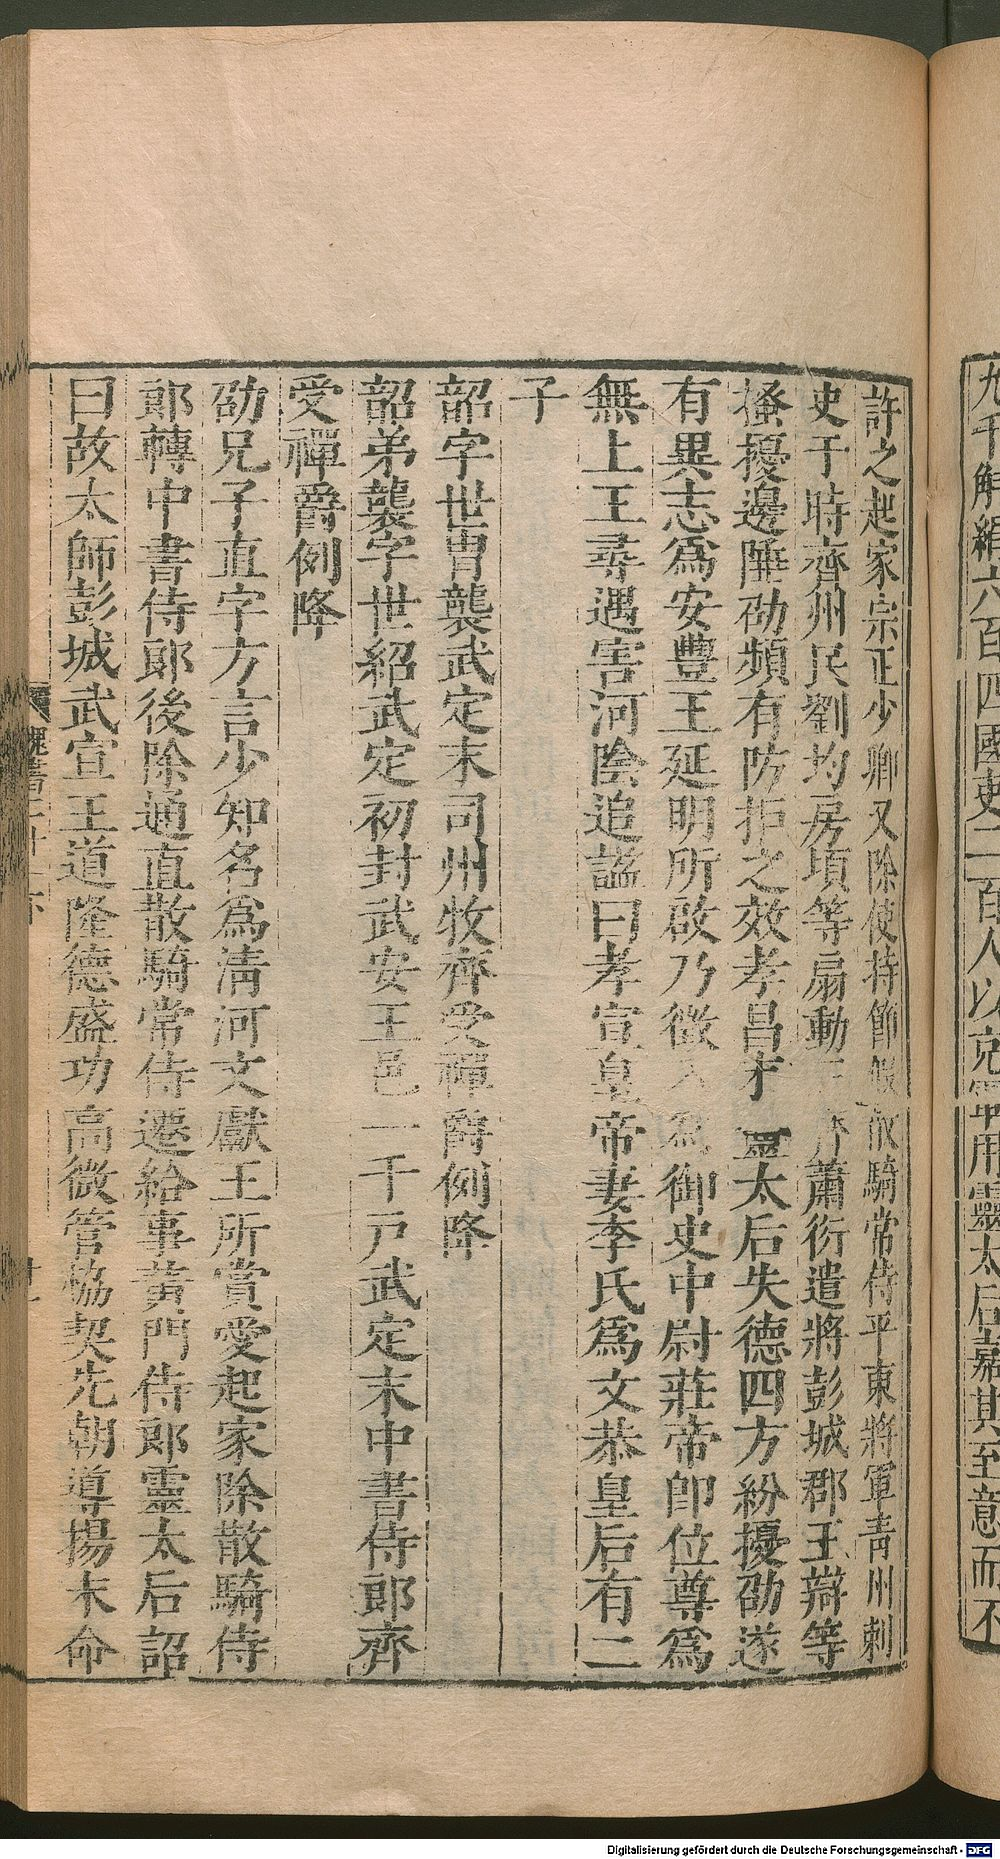 九千斛絹六百四國吏二百人以充軍用靈太后嘉其至意而不
許之起家宗正少卿又除使持節假散騎常侍平東將軍青州刺
史于時齊州民劉均房頃等扇動三齊蕭衍遣將彭城郡王辯等
搔擾邊陲劭頻有防拒之效孝昌末靈太后失德四方紛擾劭遂
有異志爲安豐王延明所啟乃徵入爲御史中尉莊帝即位尊爲
無上王尋遇害河陰追謚曰孝宣皇帝妻李氏爲文恭皇后有二
子
韶字世冑襲武定末司州牧齊受禪爵例降
韶弟襲字世紹武定初封武安王邑一千戸武定末中書侍郞齊
受禪爵例降
劭兄子直字方言少知名爲淸河文獻王所賞愛起家除散騎侍
郞轉中書侍郞後除通直散騎常侍遷給事黃門侍郞靈太后詔
曰故太師彭城武宣王道隆德盛功高微管協契先朝導揚末命
魏書二十一下
廿七
Digitalisierung gefördert durch die Deutsche Forschungsgemeinschaft - DFG